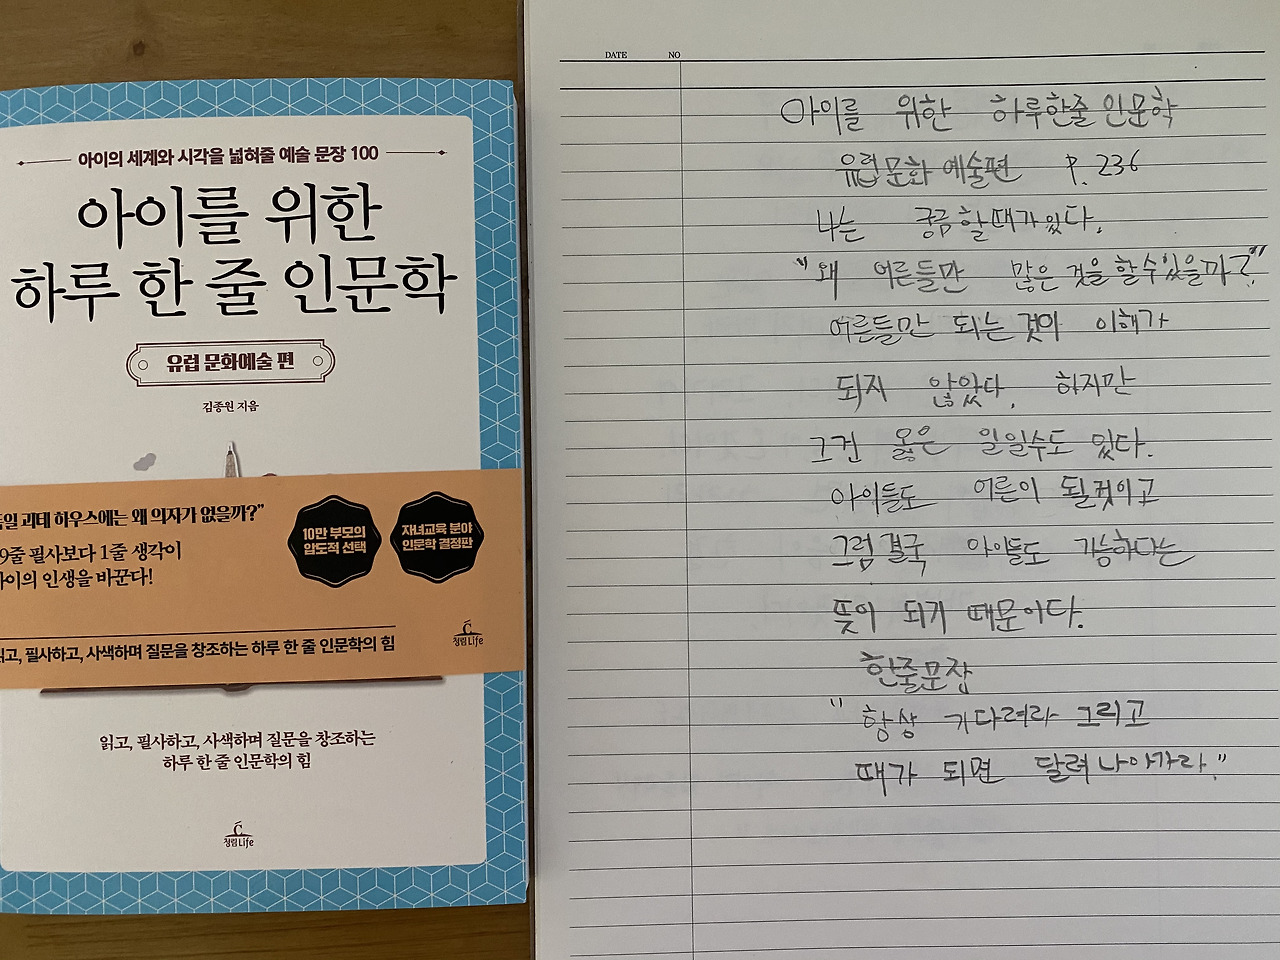 아이의 세계와 시각을 넓혀줄 예술 문장 100
아이를 위한
하루 한 줄 인문학
유럽 문화예술 편
김종원 지음
독일 괴테 하우스에는 왜 의자가 없을까?”
9줄 필사보다 1줄 생각이
아이의 인생을 바꾼다!
10만 부모의
압도적 선택
자녀교육 분야
인문학 결정판
읽고, 필사하고, 사색하며 질문을 창조하는 하루 한 줄 인문학의 힘
청림Life
읽고, 필사하고, 사색하며 질문을 창조하는
하루 한 줄 인문학의 힘
청림Life
DATE NO
아이를 위한 하루한줄 인문학
유럽문화 예술편 P. 236
나는 궁금할때가있다.
"왜 어른들만 많은 것을 할수있을까?"
어른들만 되는 것이 이해가
되지 않았다. 하지만
그건 옳은 일일수도 있다.
아이들도 어른이 될것이고
그럼 결국 아이들도 가능하다는
뜻이 되기 때문이다.
한줄문장
"항상 기다려라 그리고
때가 되면 달려나아가라."